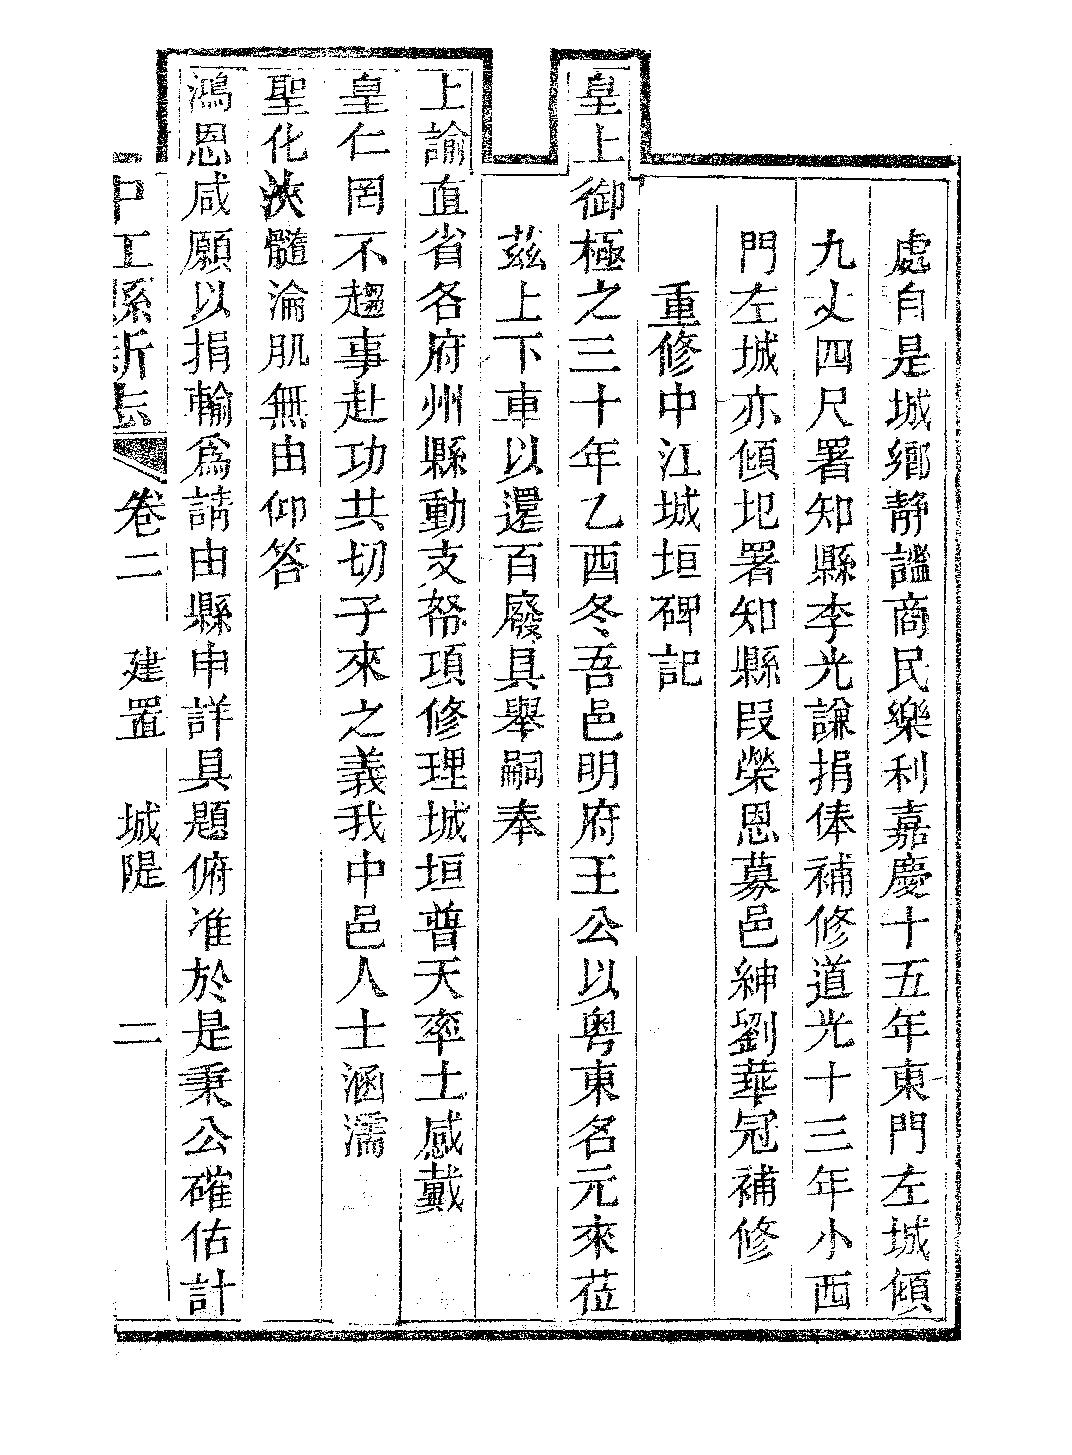 處自是城鄉靜謐商民樂利嘉慶十五年東門左城傾
九丈四尺署知縣李光謙捐俸補修道光十三年小西
門左城亦傾圯署知縣段榮恩募邑紳劉華冠補修
重修中江城垣碑記
皇上御極之三十年乙酉冬吾邑明府王公以粤東名元來莅
茲上下車以還百廢具舉嗣奉
上諭直省各府州縣動支帑項修理城垣普天率土感戴
皇仁罔不趨事赴功共切子來之義我中邑人士涵濡
聖化浹髓淪肌無由仰答
鴻恩咸願以捐輸爲請由縣申詳具題俯准於是秉公確估計
中江縣新志 卷二 建置 城隄 二